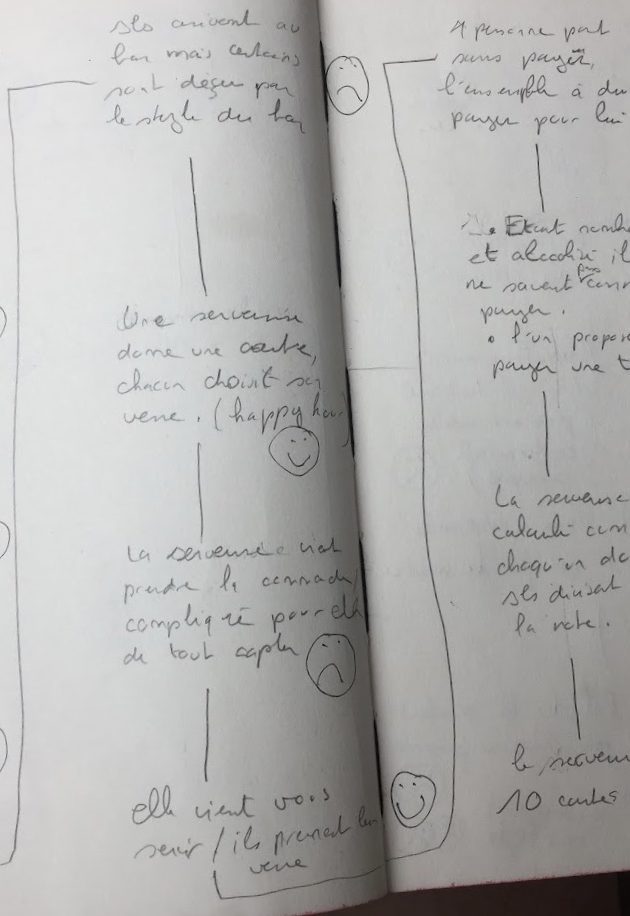 Ils arrivent au
bar mais certains
sont déçu par
le style du bar
Une serveuse
donne une carte,
chacun choisit son
verre. (happy hour)
La serveuse vient
prendre la commande
compliqué pour elle
de tout capter
elle vient vous
servir / ils prennent leur
verre
1 personne part
sans payer,
l'ensemble à du
payer pour lui
Etant nombr
et alcoolisé il
ne savent pas com
payer.
• l'un propose
payer une t
La serveuse
calculé com
chaqu'un do
Ils divisent
la note.
le serveur
10 cartes